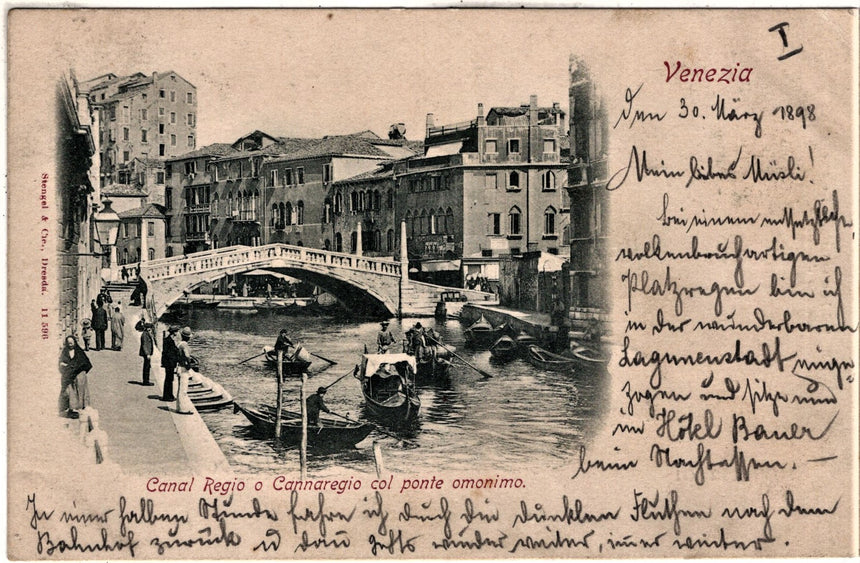 I
Venezia
Den 30. März 1898
Mein liebes Müsli!
bei einem entsetzlich,
wolkenbruchartigen
Platzregen bin ich
in der wunderbaren
Lagunenstadt einge-
zogen und sitze nun
im Hôtel Bauer
beim Nachtessen. —
Stengel & Cie., Dresda. 11 596
Canal Regio o Cannaregio col ponte omonimo.
In einer halben Stunde fahre ich durch die dunklen Fluthen nach dem
Bahnhof zurück u dan gehts wieder weiter, immer weiter.